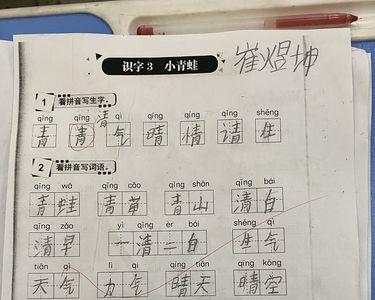 识字 3 小青蛙 崔煜坤
1 看拼音写生字。
qīng qīng qì qíng qíng qǐng shēng
清
青 青 气 晴 情 请 生
2 看拼音写词语。
qīng wā qīng cǎo qīng shān qīng bái
青蛙 青草 青山 清白
qīng zǎo yì qīng èr bái shēng qì
清早 一清二白 生气
tiān qì lì qi qíng tiān qíng kōng
天气 力气 晴天 晴空